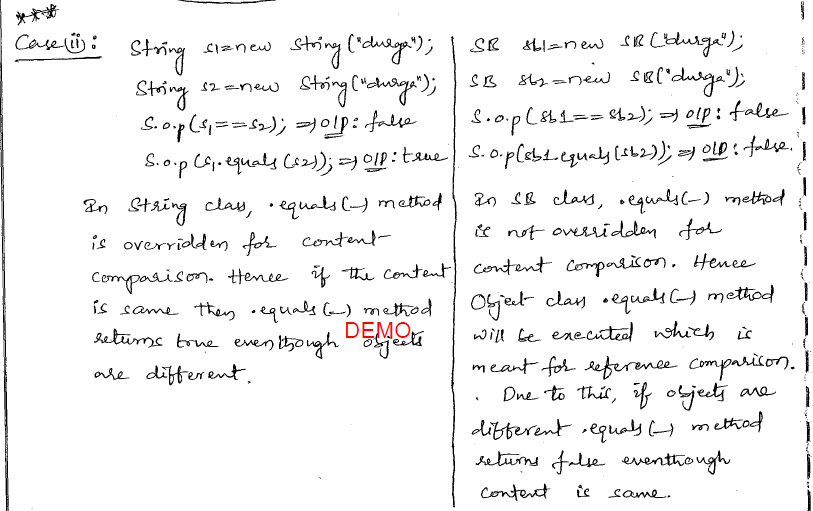 ***
Case(ii):
String s1=new String("durga");
String s2=new String("durga");
S.o.p(s1==s2); ⇒ o/p: false
S.o.p(s1.equals(s2)); ⇒ o/p: true
In String class, .equals(—) method
is overridden for content-
comparison. Hence if the content
is same then .equals(—) method
returns true eventhough objects
are different.
SB sb1=new SB("durga");
SB sb2=new SB("durga");
S.o.p(sb1==sb2); ⇒ o/p: false
S.o.p(sb1.equals(sb2)); ⇒ o/p: false.
In SB class, .equals(—) method
is not overridden for
content comparison. Hence
Object class .equals(—) method
will be executed which is
meant for reference comparison.
. Due to this, if objects are
different .equals(—) method
returns false eventhough
content is same.
DEMO